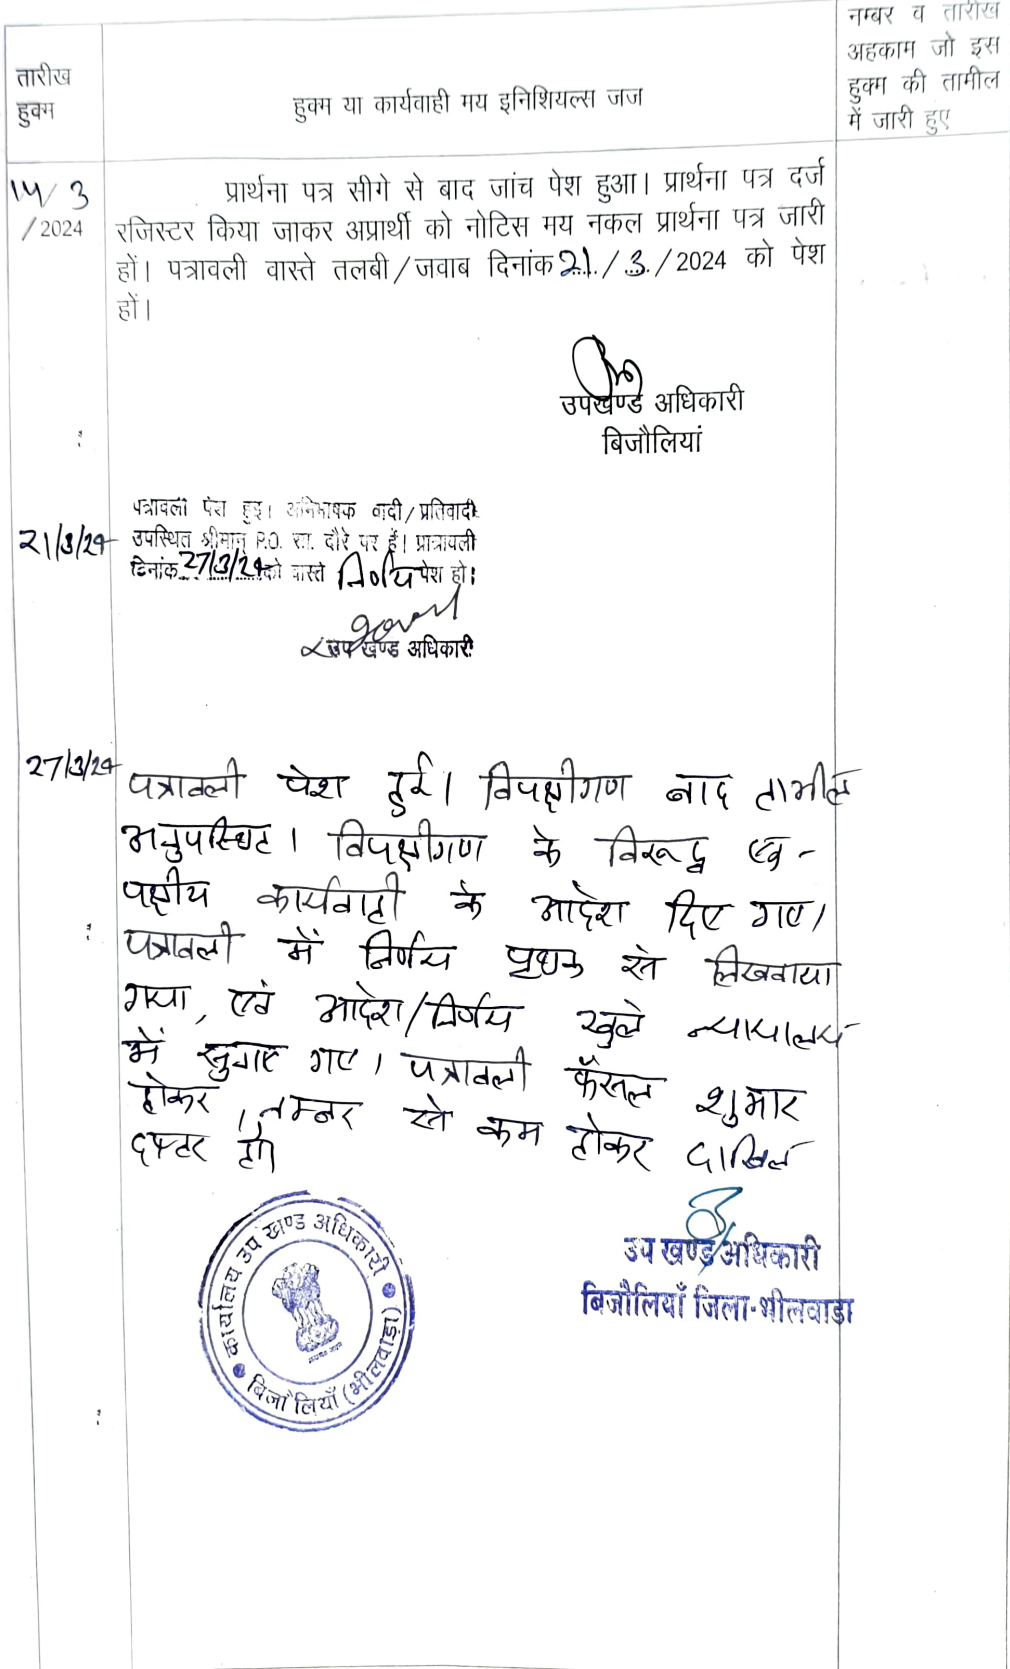 नम्बर व तारीख
अहकाम जो इस
हुक्म की तामील
में जारी हुए
तारीख
हुक्म
हुक्म या कार्यवाही मय इनिशियल्स जज
14/3
/2024
प्रार्थना पत्र सीगे से बाद जांच पेश हुआ। प्रार्थना पत्र दर्ज
रजिस्टर किया जाकर अप्रार्थी को नोटिस मय नकल प्रार्थना पत्र जारी
हों। पत्रावली वास्ते तलबी/जवाब दिनांक 21./.3./2024 को पेश
हों।
उपखण्ड अधिकारी
बिजौलियां
21/3/24
पत्रावली पेश हुई। अभिभाषक वादी/प्रतिवादी
उपस्थित श्रीमान् P.O. सा. दौरे पर हैं। पत्रावली
दिनांक 27/3/24 को वास्ते निर्णय पेश हो।
उप खण्ड अधिकारी
27/3/24
पत्रावली पेश हुई। विपक्षीगण बाद तामील
अनुपस्थित। विपक्षीगण के विरूद्ध एक-
पक्षीय कार्यवाही के आदेश दिए गए।
पत्रावली में निर्णय पृथक से लिखवाया
गया, एवं आदेश/निर्णय खुले न्यायालय
में सुनाए गए। पत्रावली फैसल शुमार
होकर, नम्बर से कम होकर दाखिल
दफ्तर हो।
उप खण्ड अधिकारी
बिजौलियाँ जिला-भीलवाड़ा
कार्यालय उप खण्ड अधिकारी
बिजौलियाँ (भीलवाड़ा)